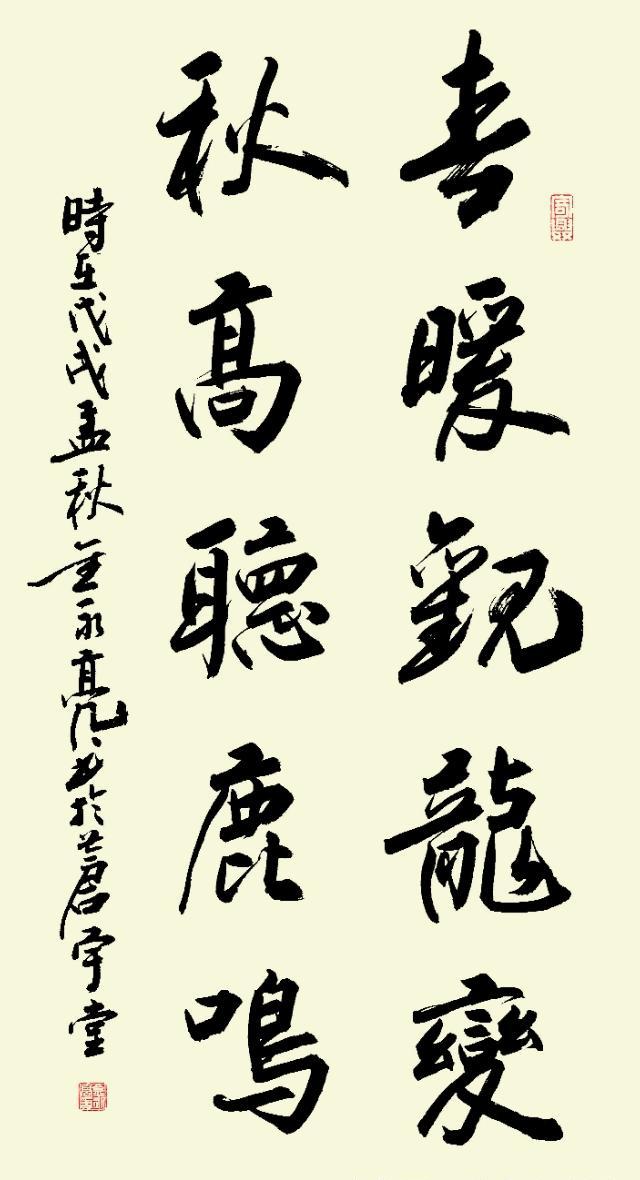 春暖觀龍變
秋高聽鹿鳴
時在戊戌孟秋金永亮書於蒼宇堂